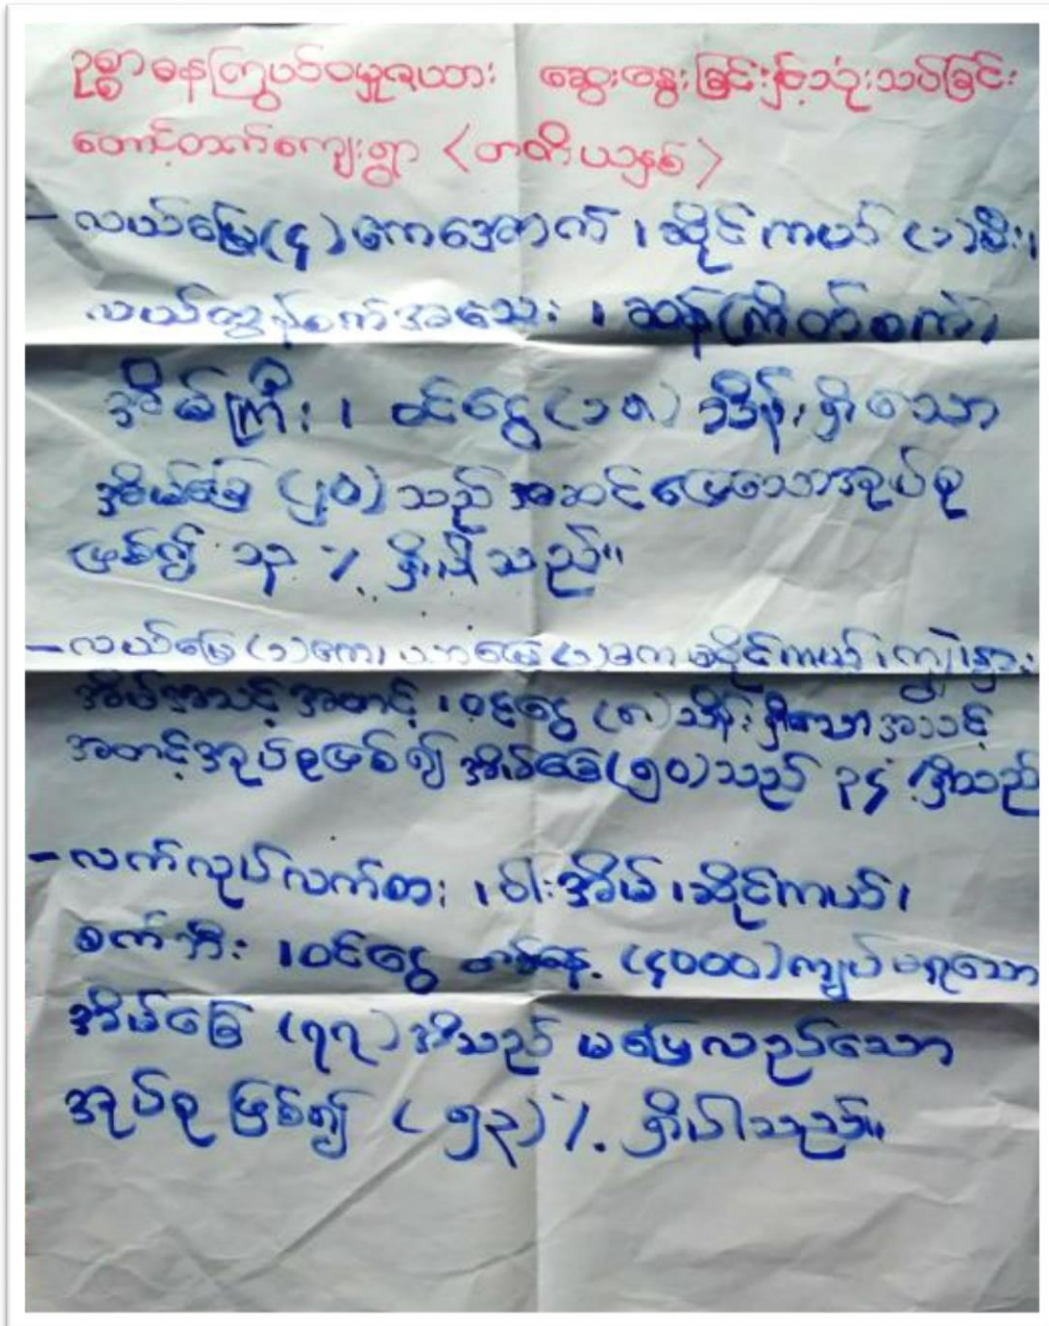 ဥစ္စာဓနကြွယ်ဝမှုဇယား ဆွေးနွေးခြင်းနှင့်သုံးသပ်ခြင်း
တောင်တက်ကျေးရွာ <တတိယနှစ်>
- လယ်မြေ(၄)ဧကအောက် ၊ ဆိုင်ကယ် (၁)စီး၊
လယ်ထွန်စက်အသေး ၊ ဆန်ကြိတ်စက်၊
အိမ်ကြီး ၊ ဝင်ငွေ(၁၈)သိန်းရှိသော
အိမ်ခြေ (၂၀)သည် အဆင်ပြေသောအုပ်စု
ဖြစ်၍ ၁၃ % ရှိပါသည်။
- လယ်မြေ(၁)ဧက၊ ယာမြေ(၁)ဧက ဆိုင်ကယ်၊ ကျွဲ၊နွား
အိမ်အသင့်အတင့် ၊ ဝင်ငွေ (၈)သိန်းရှိသောအသင့်
အတင့်အုပ်စုဖြစ်၍ အိမ်ခြေ(၅၀)သည် ၃၄ %ရှိသည်
- လက်လုပ်လက်စား ၊ ဝါးအိမ် ၊ ဆိုင်ကယ်၊
စက်ဘီး ၊ ဝင်ငွေ တစ်နေ့ (၄၀၀၀)ကျပ် ရသော
အိမ်ခြေ (၇၇)အိသည် မပြေလည်သော
အုပ်စု ဖြစ်၍ (၅၃)% ရှိပါသည်။